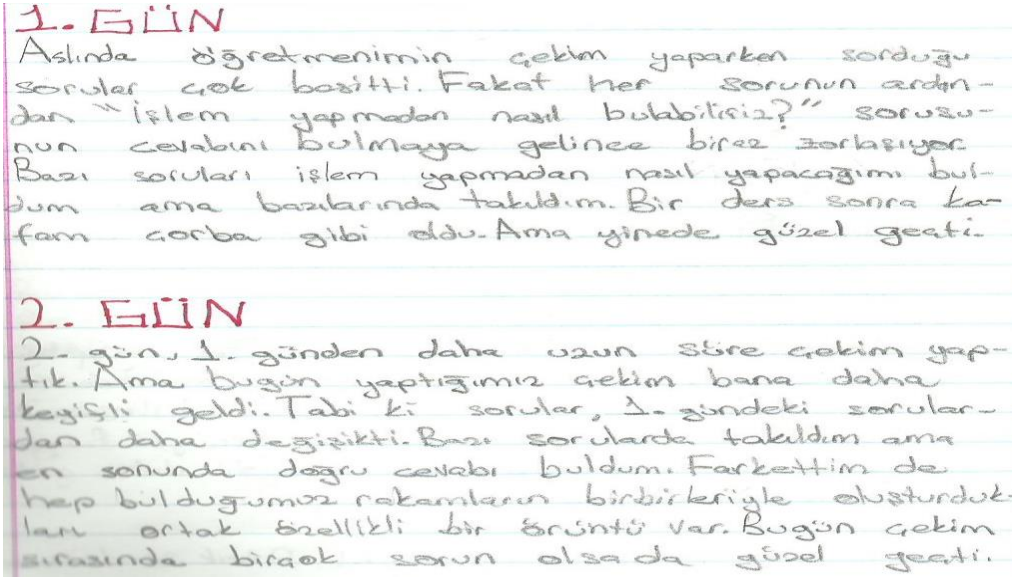 1. GÜN
Aslında öğretmenimin çekim yaparken sorduğu
sorular çok basitti. Fakat her sorunun ardın-
dan "İşlem yapmadan nasıl bulabiliriz?" sorusu-
nun cevabını bulmaya gelince biraz zorlaşıyor.
Bazı soruları işlem yapmadan nasıl yapacağımı bul-
dum ama bazılarında takıldım. Bir ders sonra ka-
fam çorba gibi oldu. Ama yinede güzel geçti.
2. GÜN
2. gün, 1. günden daha uzun süre çekim yap-
tık. Ama bugün yaptığımız çekim bana daha
keyifli geldi. Tabi ki sorular, 1. gündeki sorular-
dan daha değişikti. Bazı sorularda takıldım ama
en sonunda doğru cevabı buldum. Farkettim de
hep bulduğumuz rakamların birbirleriyle oluşturduk-
ları ortak özellikli bir örüntü var. Bugün çekim
sırasında birçok sorun olsa da güzel geçti.